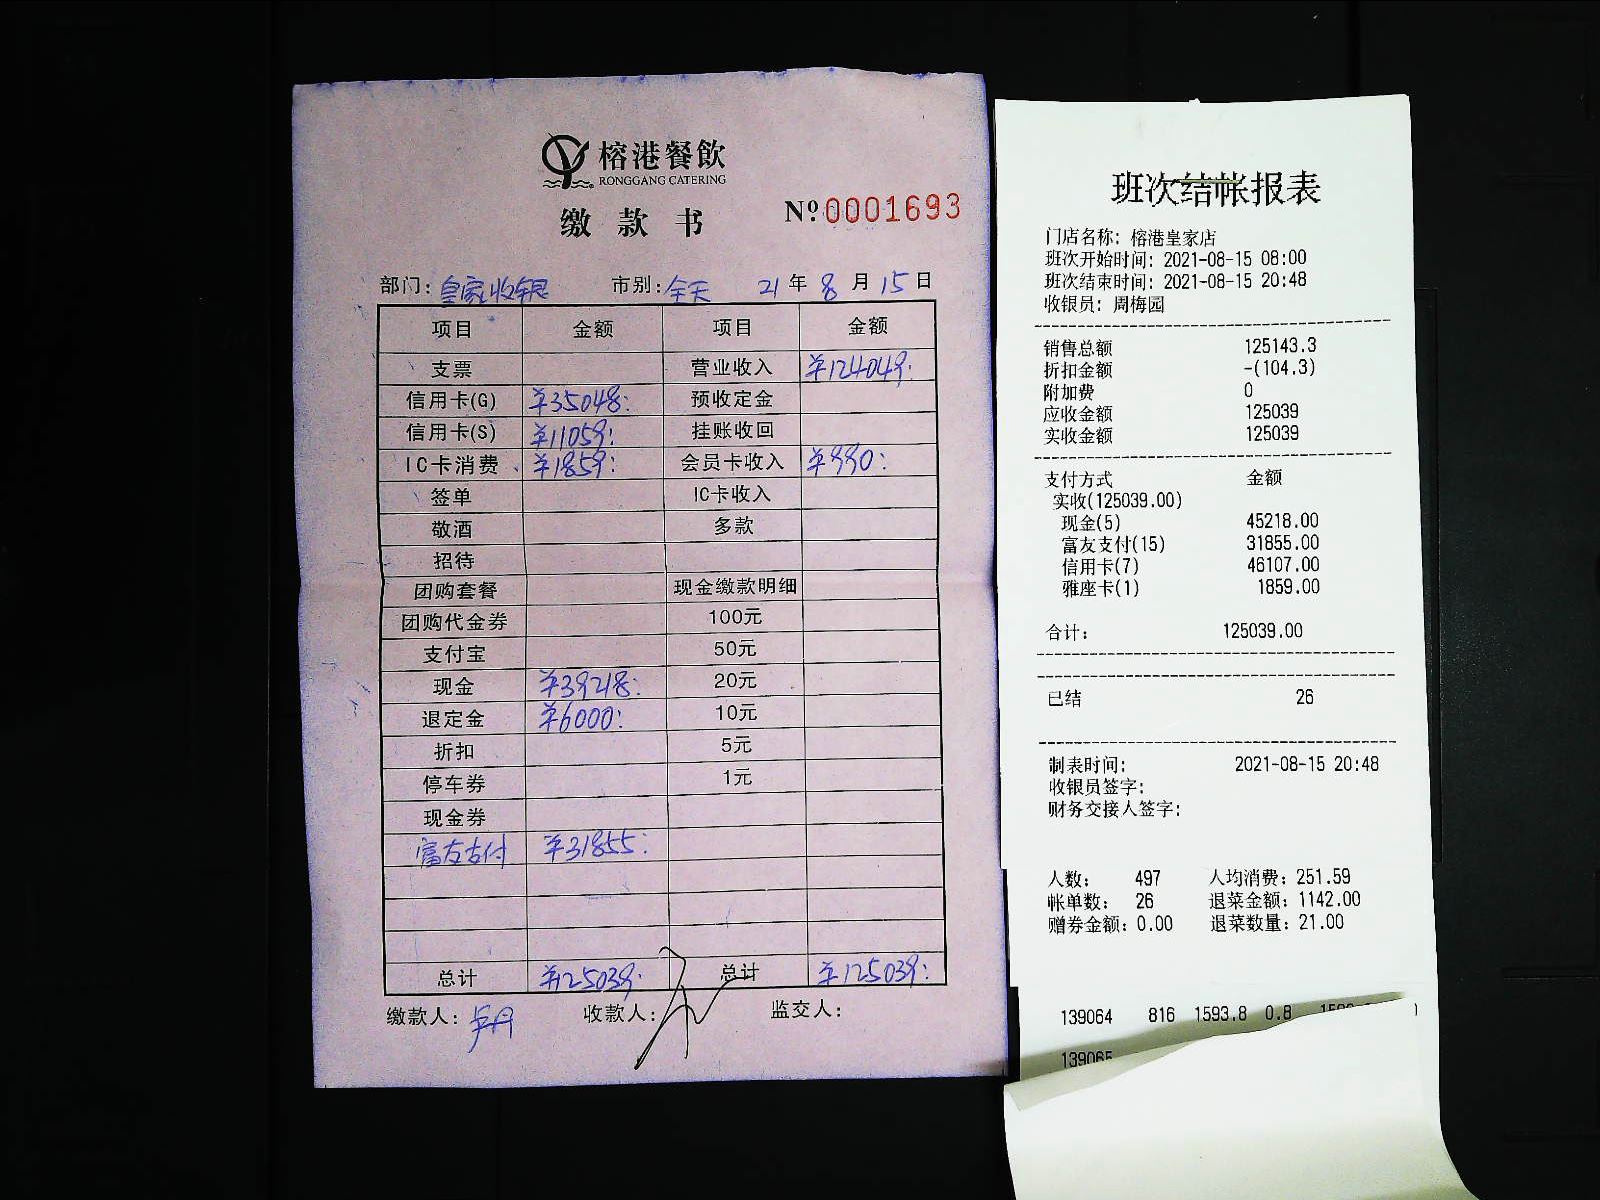 榕港餐飲
RONGGANG CATERING
缴款书
№0001693
部门：皇家收银 市别：全天 21年8月15日
项目 金额 项目 金额
支票 营业收入 ¥124049.
信用卡(G) ¥35048. 预收定金
信用卡(S) ¥11059. 挂账收回
IC卡消费 ¥1859. 会员卡收入 ¥990.
签单 IC卡收入
敬酒 多款
招待
团购套餐 现金缴款明细
团购代金券 100元
支付宝 50元
现金 ¥39218. 20元
退定金 ¥6000. 10元
折扣 5元
停车券 1元
现金券
富友支付 ¥31855.
总计 ¥125039. 总计 ¥125039.
缴款人： 收款人： 监交人：
班次结帐报表
门店名称: 榕港皇家店
班次开始时间: 2021-08-15 08:00
班次结束时间: 2021-08-15 20:48
收银员: 周梅园
销售总额 125143.3
折扣金额 -(104.3)
附加费 0
应收金额 125039
实收金额 125039
支付方式 金额
实收(125039.00)
现金(5) 45218.00
富友支付(15) 31855.00
信用卡(7) 46107.00
雅座卡(1) 1859.00
合计: 125039.00
已结 26
制表时间: 2021-08-15 20:48
收银员签字:
财务交接人签字:
人数: 497 人均消费: 251.59
帐单数: 26 退菜金额: 1142.00
赠券金额: 0.00 退菜数量: 21.00
139064 816 1593.8 0.8
139065